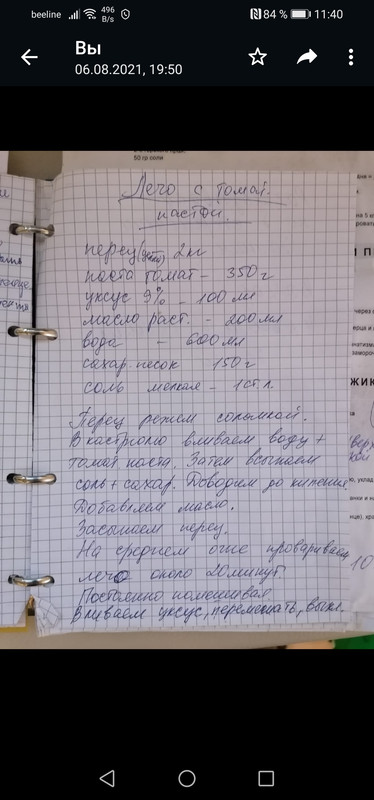 beeline 496 B/s 84 % 11:40
Вы
06.08.2021, 19:50
50 гр соли
Лечо с томат.
пастой.
перец 2 кг
паста томат - 350 г
уксус 9% - 100 мл
масло раст. - 200 мл
вода - 600 мл
сахар песок 150 г
соль мелкая - 1 ст л.
Перец режем соломкой.
В кастрюлю вливаем воду +
томат паста. Затем всыпаем
соль + сахар. Доводим до кипения.
Добавляем масло.
Засыпаем перец.
На среднем огне провариваем
лечо около 20 минут
Постоянно помешивая.
Вливаем уксус, перемешать, выкл.
10